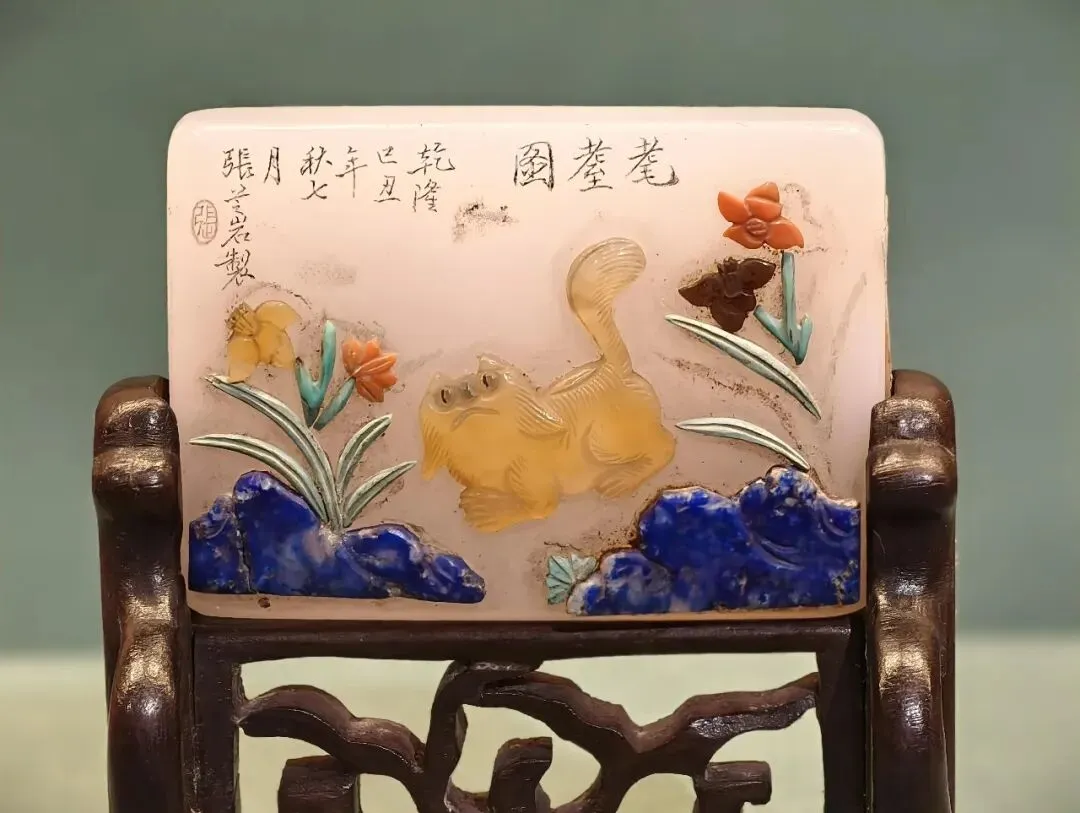 耄耋圖
乾隆
己丑
年
秋七
月
張芝岩製
張